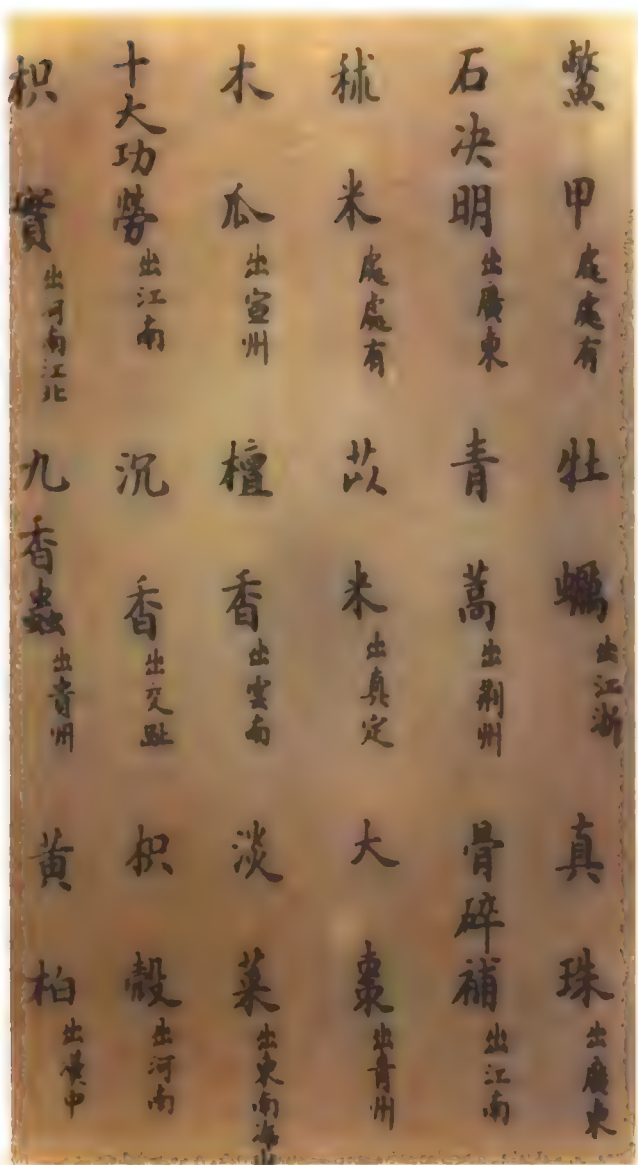 鱉甲 處處有 牡蠣 出江浙 真珠 出廣東
石決明 出廣東 青蒿 出荊州 骨碎補 出江南
秫米 處處有 苡米 出真定 大棗 出青州
木瓜 出宣州 檀香 出雲南 淡菜 出東南海
十大功勞 出江南 沉香 出交趾 枳殼 出河南
枳實 出河南江北 九香蟲 出貴州 黃柏 出漢中